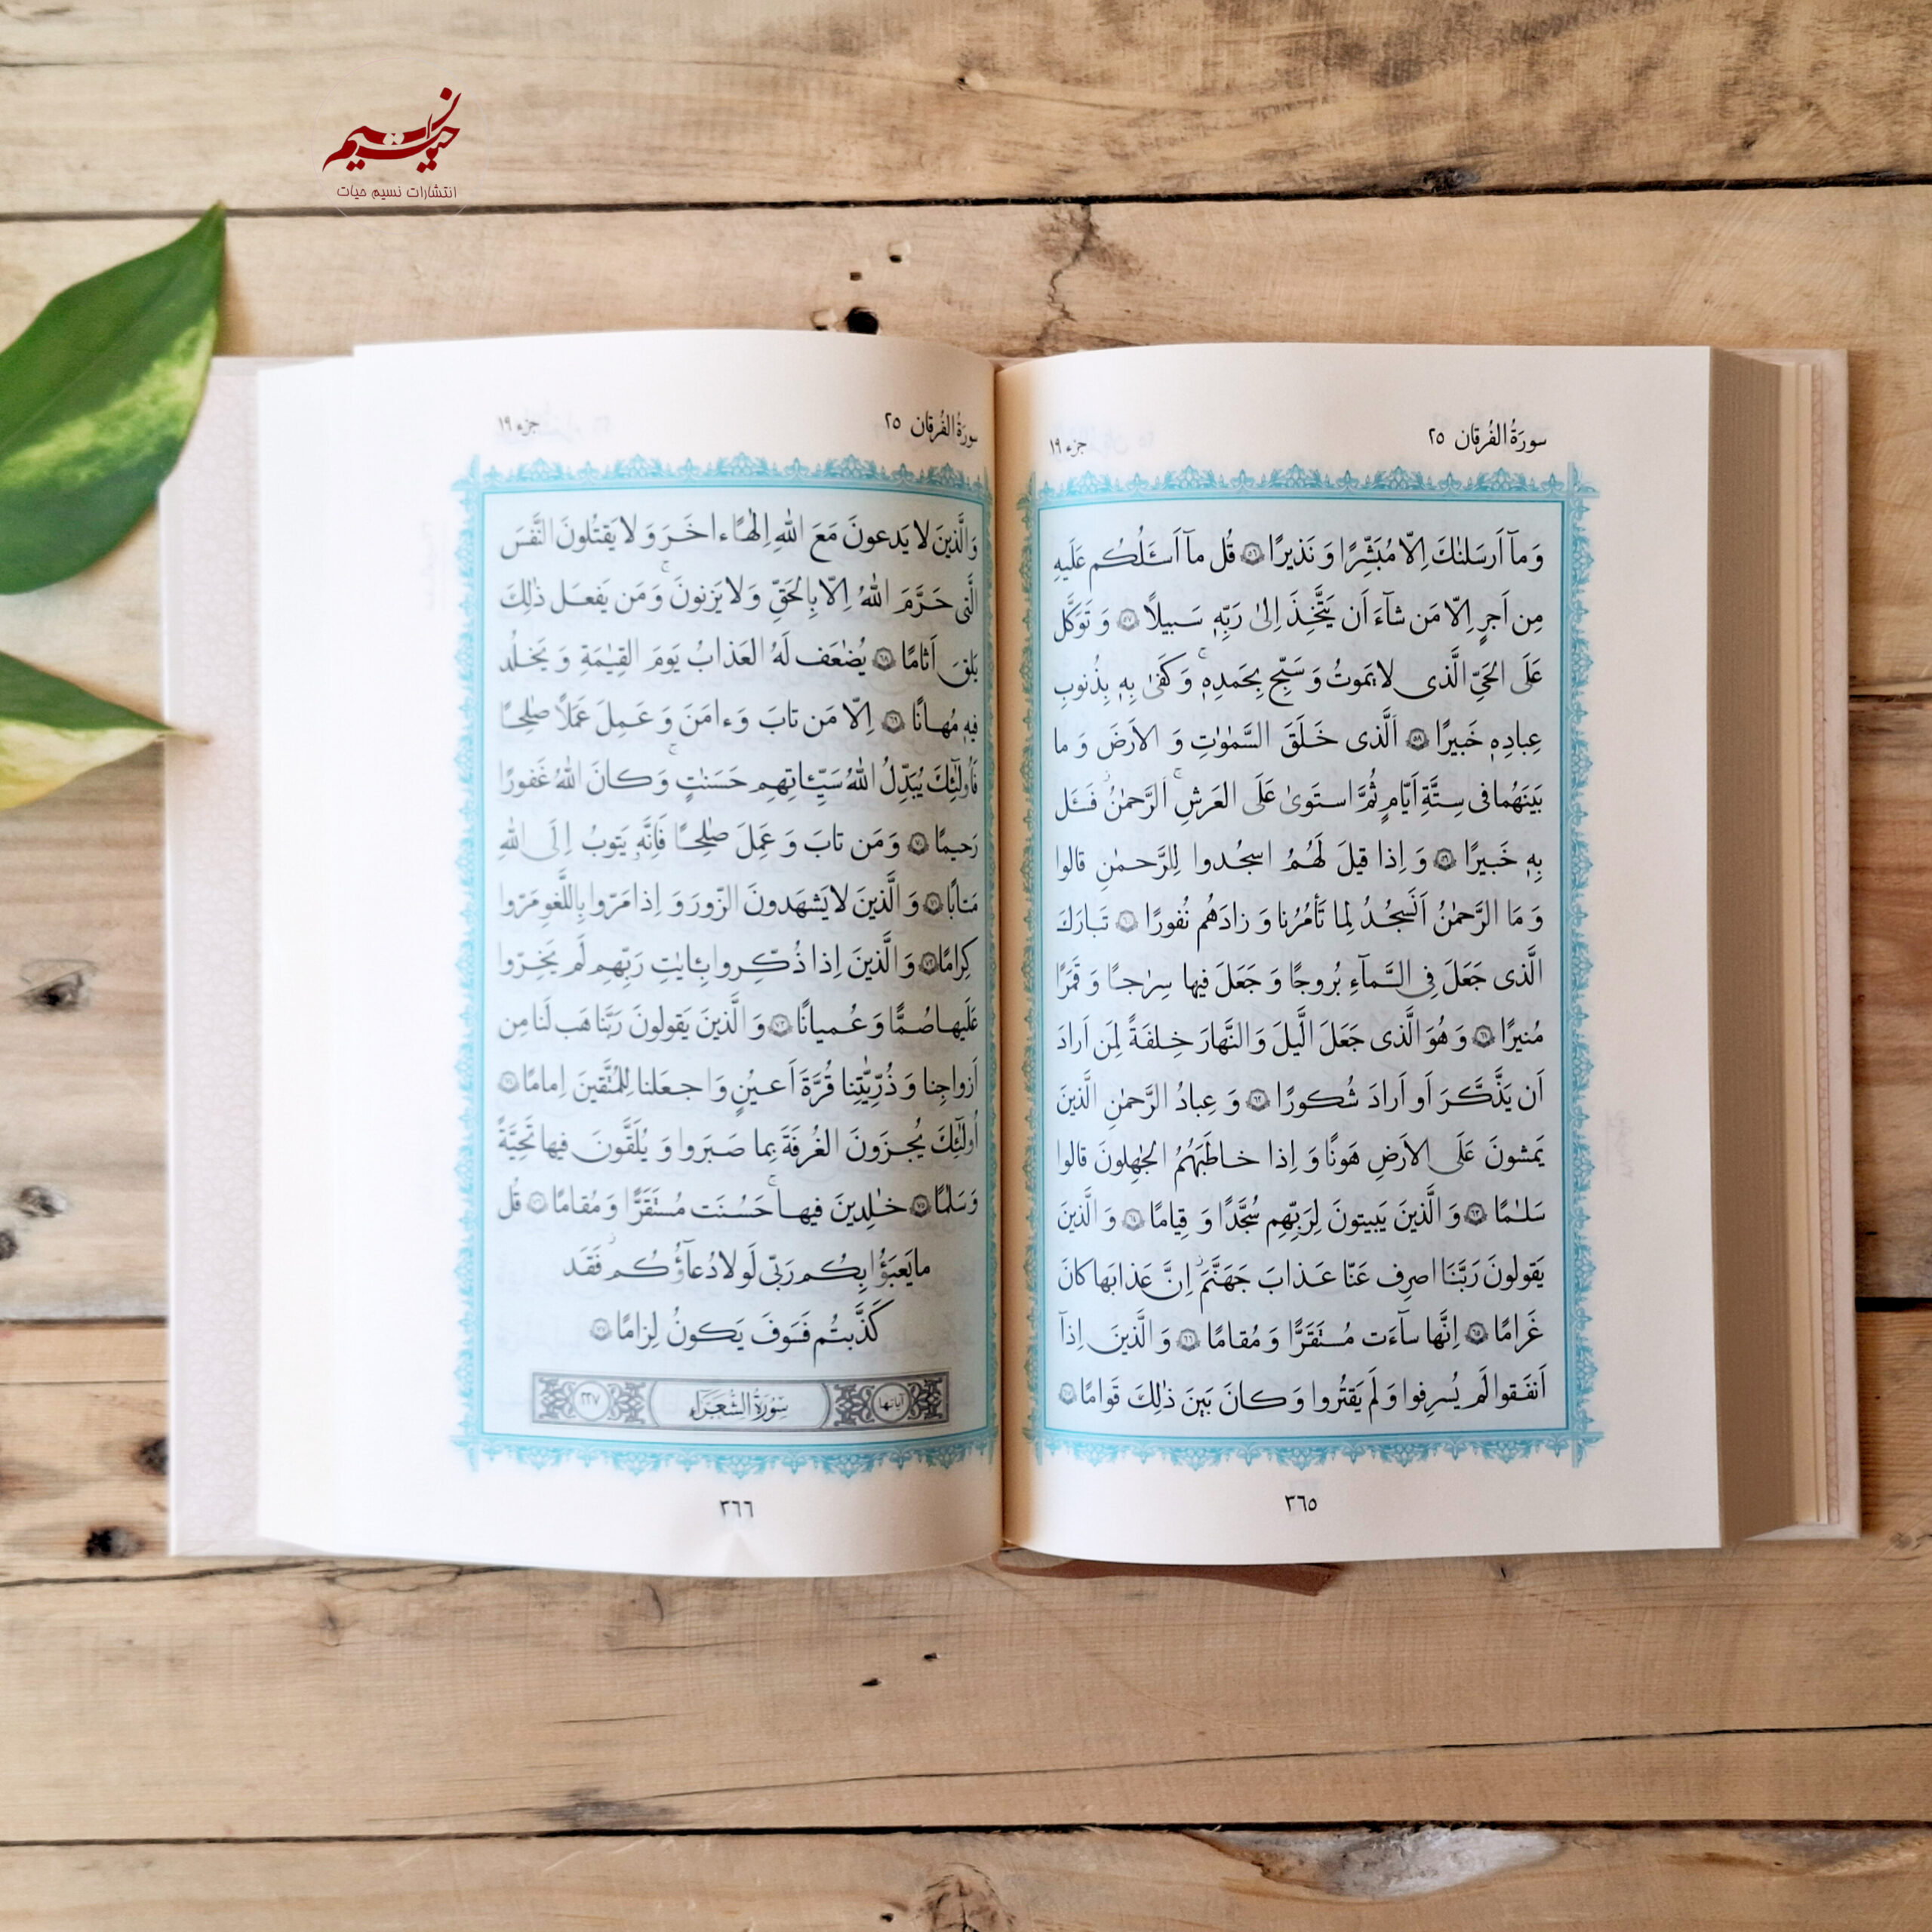 نسیم حیات
انتشارات نسیم حیات
سورَةُ الفُرقان ٢٥
جزء ١٩
وَ مآ اَرسَلنٰكَ اِلّا مُبَشِّرًا وَ نَذيرًا ٥٦ قُل مآ اَسـَٔلُكُم عَلَيهِ
مِن اَجرٍ اِلّا مَن شآءَ اَن يَتَّخِذَ اِلىٰ رَبِّهٖ سَبيلًا ٥٧ وَ تَوَكَّل
عَلَى الحَيِّ الَّذى لا يَموتُ وَ سَبِّح بِحَمدِهٖ ۚ وَ كَفىٰ بِهٖ بِذُنوبِ
عِبادِهٖ خَبيرًا ٥٨ اَلَّذى خَلَقَ السَّمٰوٰتِ وَ الاَرضَ وَ ما
بَينَهُما فى سِتَّةِ اَيّامٍ ثُمَّ استَوىٰ عَلَى العَرشِ ۚ اَلرَّحمٰنُ فَسـَٔل
بِهٖ خَبيرًا ٥٩ وَ اِذا قيلَ لَهُمُ اسجُدوا لِلرَّحمٰنِ قالوا
وَ مَا الرَّحمٰنُ اَنَسجُدُ لِما تَأمُرُنا وَ زادَهُم نُفورًا ٦٠ تَبارَكَ
الَّذى جَعَلَ فِى السَّمآءِ بُروجًا وَ جَعَلَ فيها سِرٰجًا وَ قَمَرًا
مُنيرًا ٦١ وَ هُوَ الَّذى جَعَلَ الَّيلَ وَ النَّهارَ خِلفَةً لِمَن اَرادَ
اَن يَذَّكَّرَ اَو اَرادَ شُكورًا ٦٢ وَ عِبادُ الرَّحمٰنِ الَّذينَ
يَمشونَ عَلَى الاَرضِ هَونًا وَ اِذا خاطَبَهُمُ الجٰهِلونَ قالوا
سَلٰمًا ٦٣ وَ الَّذينَ يَبيتونَ لِرَبِّهِم سُجَّدًا وَ قِيامًا ٦٤ وَ الَّذينَ
يَقولونَ رَبَّنَا اصرِف عَنّا عَذابَ جَهَنَّمَ ۖ اِنَّ عَذابَها كانَ
غَرامًا ٦٥ اِنَّها سآءَت مُستَقَرًّا وَ مُقامًا ٦٦ وَ الَّذينَ اِذآ
اَنفَقوا لَم يُسرِفوا وَ لَم يَقتُروا وَ كانَ بَينَ ذٰلِكَ قَوامًا ٦٧
٣٦٥
سورَةُ الفُرقان ٢٥
جزء ١٩
وَ الَّذينَ لا يَدعونَ مَعَ اللّٰهِ اِلٰهًا ءاخَرَ وَ لا يَقتُلونَ النَّفسَ
الَّتى حَرَّمَ اللّٰهُ اِلّا بِالحَقِّ وَ لا يَزنونَ ۚ وَ مَن يَفعَل ذٰلِكَ
يَلقَ اَثامًا ٦٨ يُضٰعَف لَهُ العَذابُ يَومَ القِيٰمَةِ وَ يَخلُد
فيهٖ مُهانًا ٦٩ اِلّا مَن تابَ وَ ءامَنَ وَ عَمِلَ عَمَلًا صٰلِحًا
فَاُولٰٓئِكَ يُبَدِّلُ اللّٰهُ سَيِّـٔاتِهِم حَسَنٰتٍ ۚ وَ كانَ اللّٰهُ غَفورًا
رَحيمًا ٧٠ وَ مَن تابَ وَ عَمِلَ صٰلِحًا فَاِنَّهٗ يَتوبُ اِلَى اللّٰهِ
مَتابًا ٧١ وَ الَّذينَ لا يَشهَدونَ الزّورَ وَ اِذا مَرّوا بِاللَّغوِ مَرّوا
كِرامًا ٧٢ وَ الَّذينَ اِذا ذُكِّروا بِـٔايٰتِ رَبِّهِم لَم يَخِرّوا
عَلَيها صُمًّا وَ عُميانًا ٧٣ وَ الَّذينَ يَقولونَ رَبَّنا هَب لَنا مِن
اَزواجِنا وَ ذُرِّيّٰتِنا قُرَّةَ اَعيُنٍ وَ اجعَلنا لِلمُتَّقينَ اِمامًا ٧٤
اُولٰٓئِكَ يُجزَونَ الغُرفَةَ بِما صَبَروا وَ يُلَقَّونَ فيها تَحِيَّةً
وَ سَلٰمًا ٧٥ خٰلِدينَ فيها ۚ حَسُنَت مُستَقَرًّا وَ مُقامًا ٧٦ قُل
ما يَعبَؤُا بِكُم رَبّى لَولا دُعآؤُكُم ۖ فَقَد
كَذَّبتُم فَسَوفَ يَكونُ لِزامًا ٧٧
آیاتها سُورَةُ الشُّعَرَاء ٢٢٧
٣٦٦